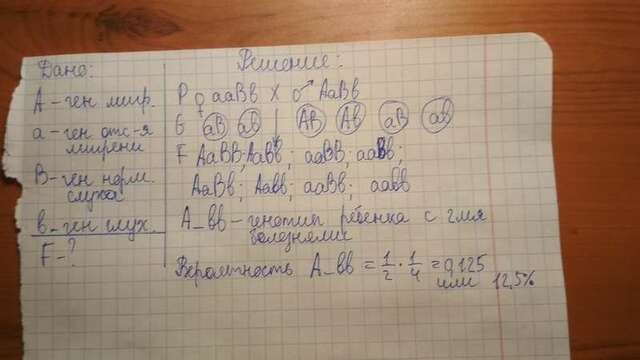 Дано:
А - ген мигр.
а - ген отс-я
мигрени
В - ген норм.
слуха
в - ген глух.
F - ?
Решение:
P ♀ ааВв X ♂ АаВв
G аВ ав | АВ Ав аВ ав
F АаВВ; АаВв; ааВВ; ааВв;
АаВв; Аавв; ааВв; аавв
А_вв - генотип ребенка с 2мя
болезнями
Вероятность А_вв = 1/2 · 1/4 = 0,125
или 12,5%